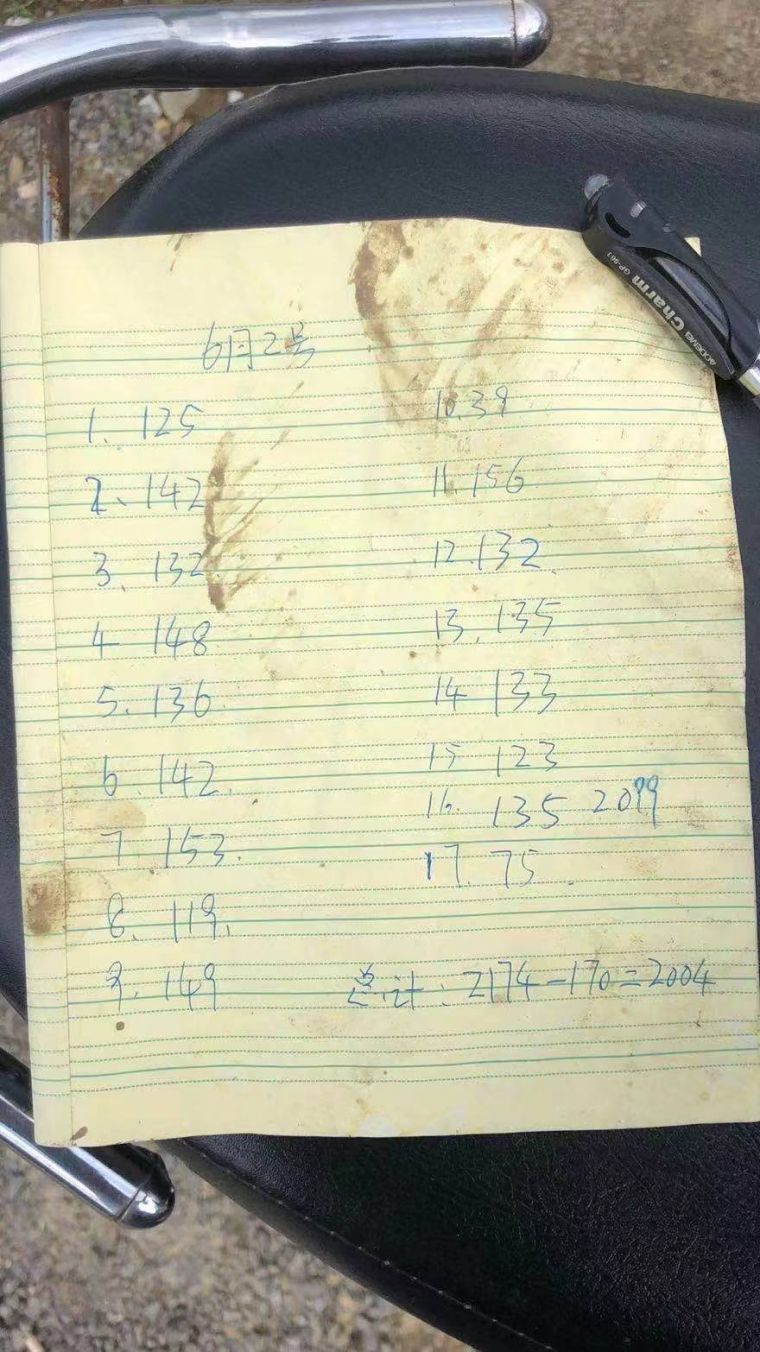 6月2号
1. 125
2、142
3. 132
4 148
5. 136
6. 142.
7. 153.
8. 119.
9. 149
10.39
11.156
12.132
13.135
14 133
15 123
16. 135 2099
17. 75
总计：2174-170=2004
Charm GP-961